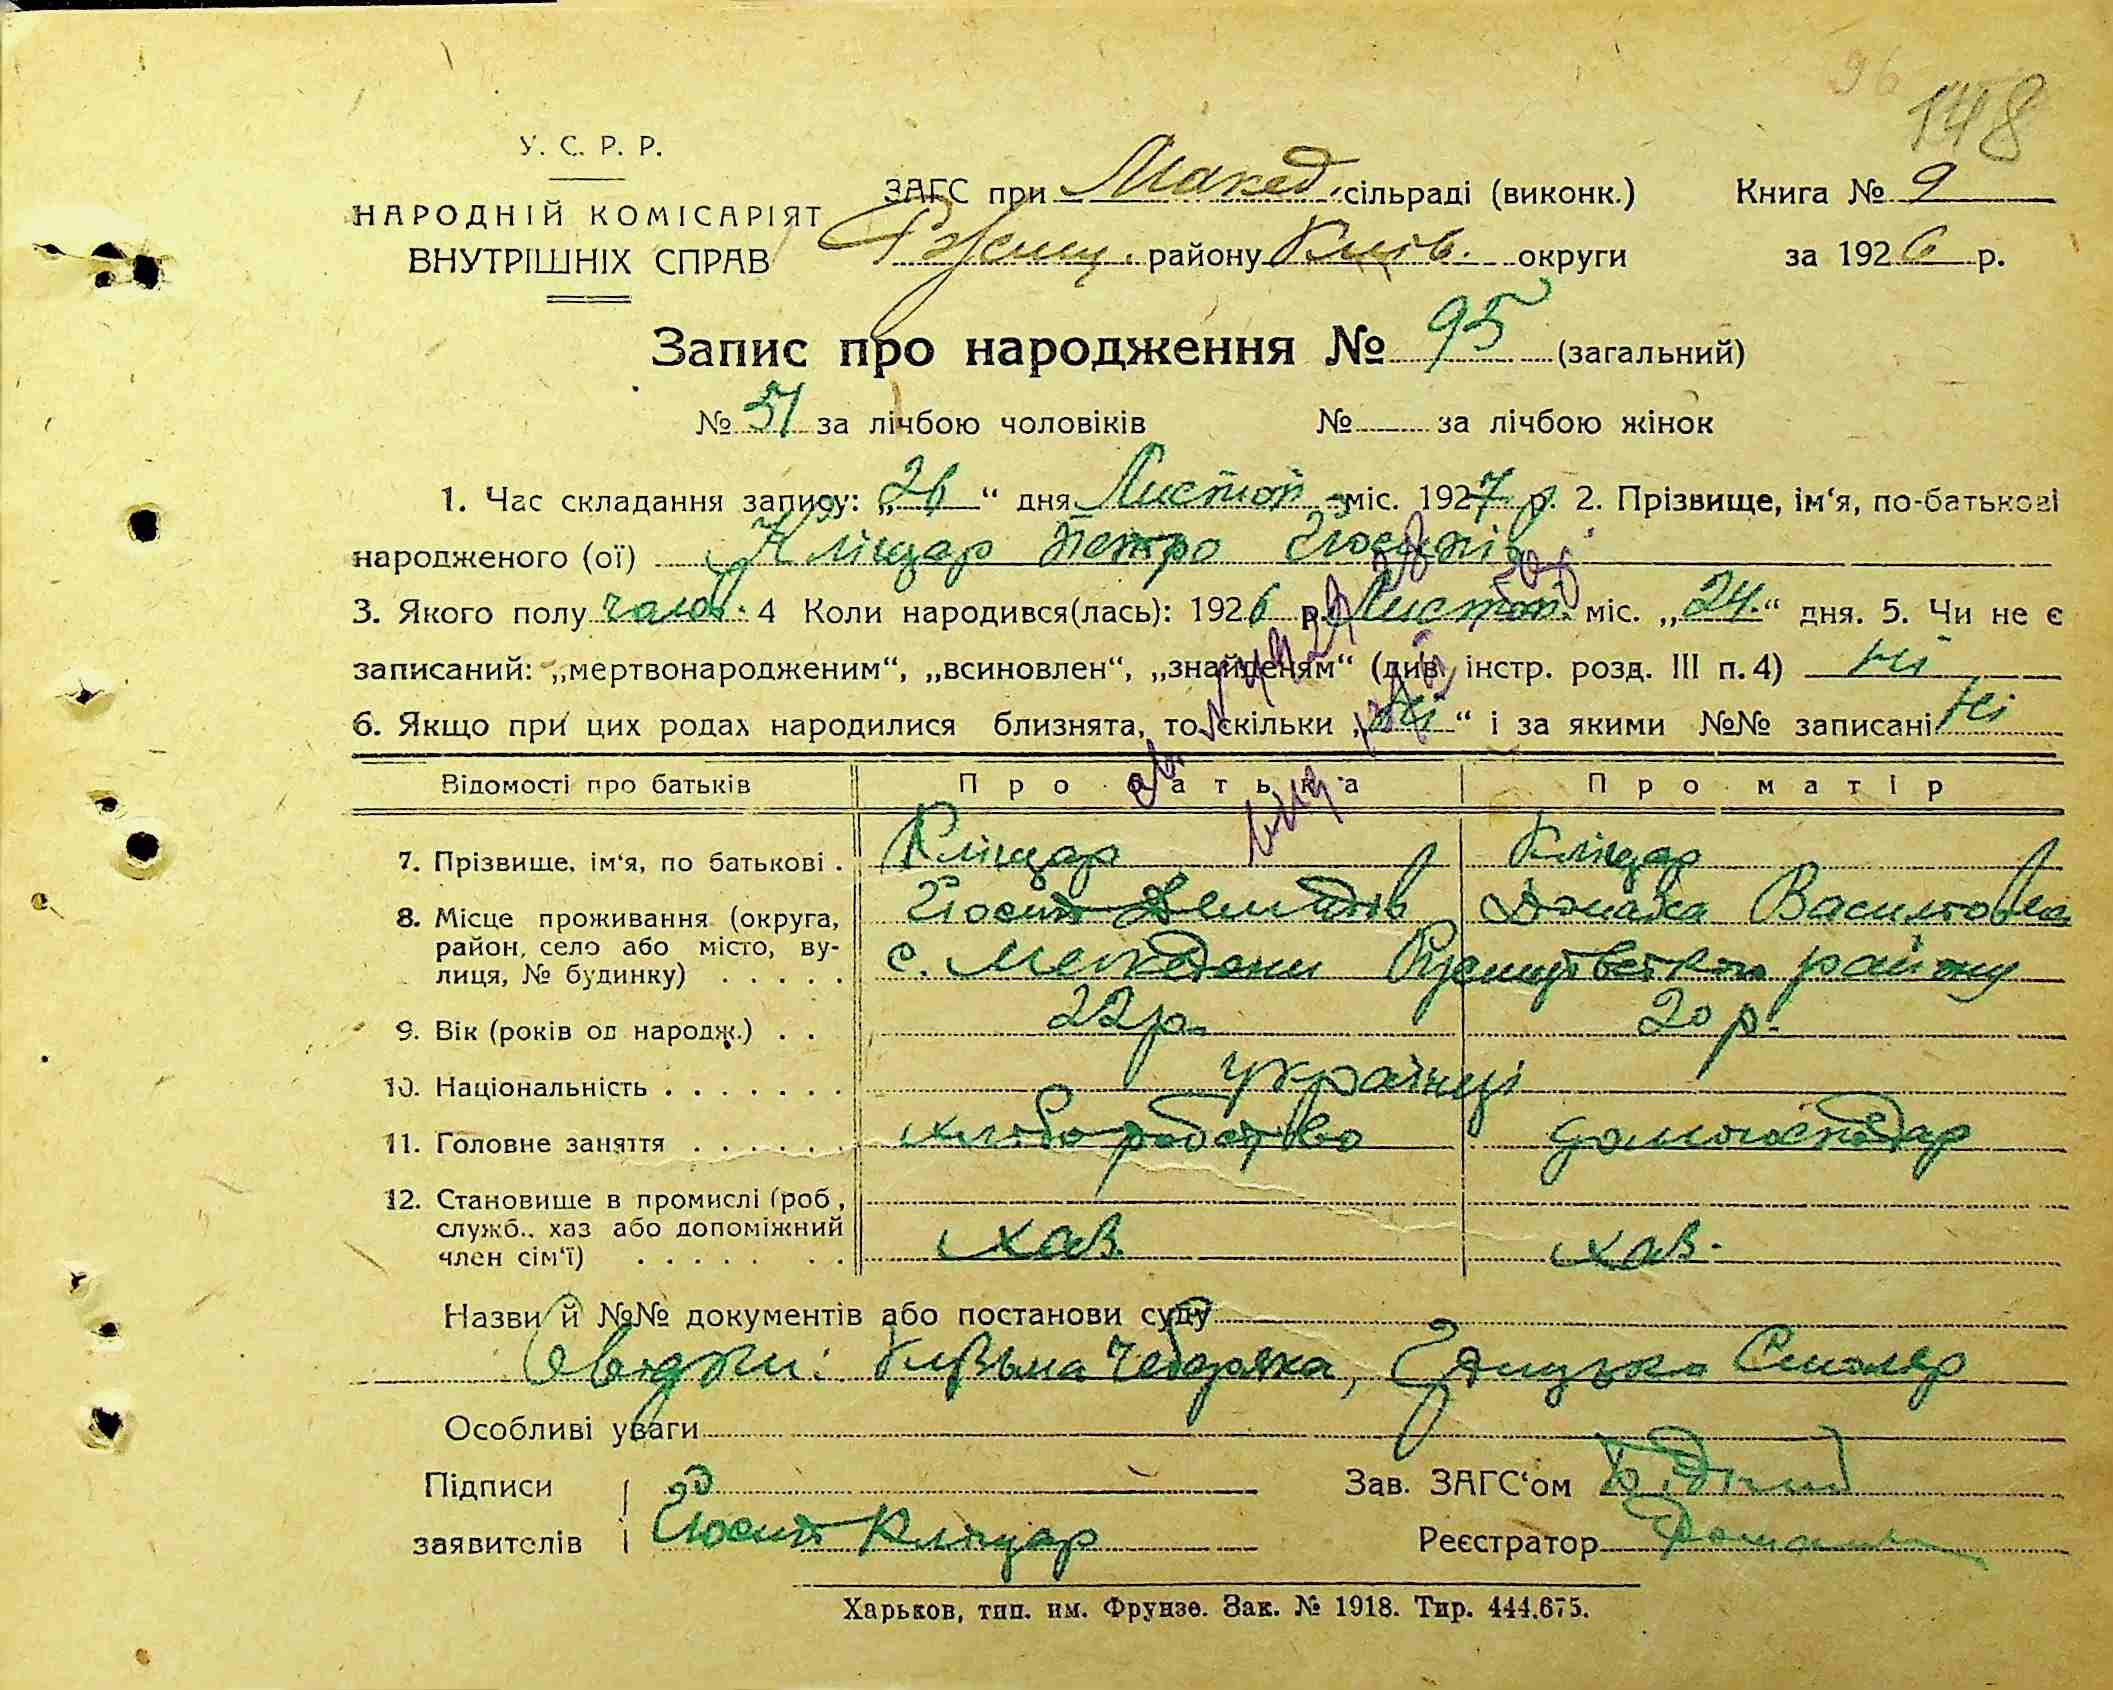 96
148
У. С. Р. Р.
НАРОДНІЙ КОМІСАРІЯТ
ВНУТРІШНІХ СПРАВ
ЗАГС при Макед. сільраді (виконк.) Книга № 9
Ржищ. району Київ. округи за 1926 р.
Запис про народження № 95 (загальний)
№ 51 за лічбою чоловіків № за лічбою жінок
1. Час складання запису: „26“ дня Листоп міс. 1927 р. 2. Прізвище, ім‘я, по-батькові
народженого (ої) Кліщар Петро Йосипів
3. Якого полу чолов. 4 Коли народився(лась): 1926 р. Листоп. міс. „24.“ дня. 5. Чи не є
записаний: „мертвонародженим“, „всиновлен“, „знайденям“ (див. інстр. розд. III п. 4) ні
6. Якщо при цих родах народилися близнята, то скільки „ні“ і за якими №№ записані ні
Відомості про батьків Про батька Про матір
7. Прізвище, ім‘я, по батькові . Кліщар Кліщар
Йосип Демидів Домаха Василівна
8. Місце проживання (округа,
район, село або місто, ву-
лиця, № будинку) . . . . . с. Македони Ржищівського району
9. Вік (років од народж.) . . 22р. 20 р.
10. Національність . . . . . . . українці
11. Головне заняття . . . . . . хліборобство домогосподар
12. Становище в промислі (роб.,
служб., хаз або допоміжний
член сім‘ї) . . . . . . . хаз. хаз.
Назви й №№ документів або постанови суду
Свідки: Кузьма Чеберяка, Грицько Столяр
Особливі уваги
Підписи
заявителів Йосип Кліщар
Зав. ЗАГС‘ом
Реєстратор
Харьков, тип. им. Фрунзе. Зак. № 1918. Тир. 444.675.